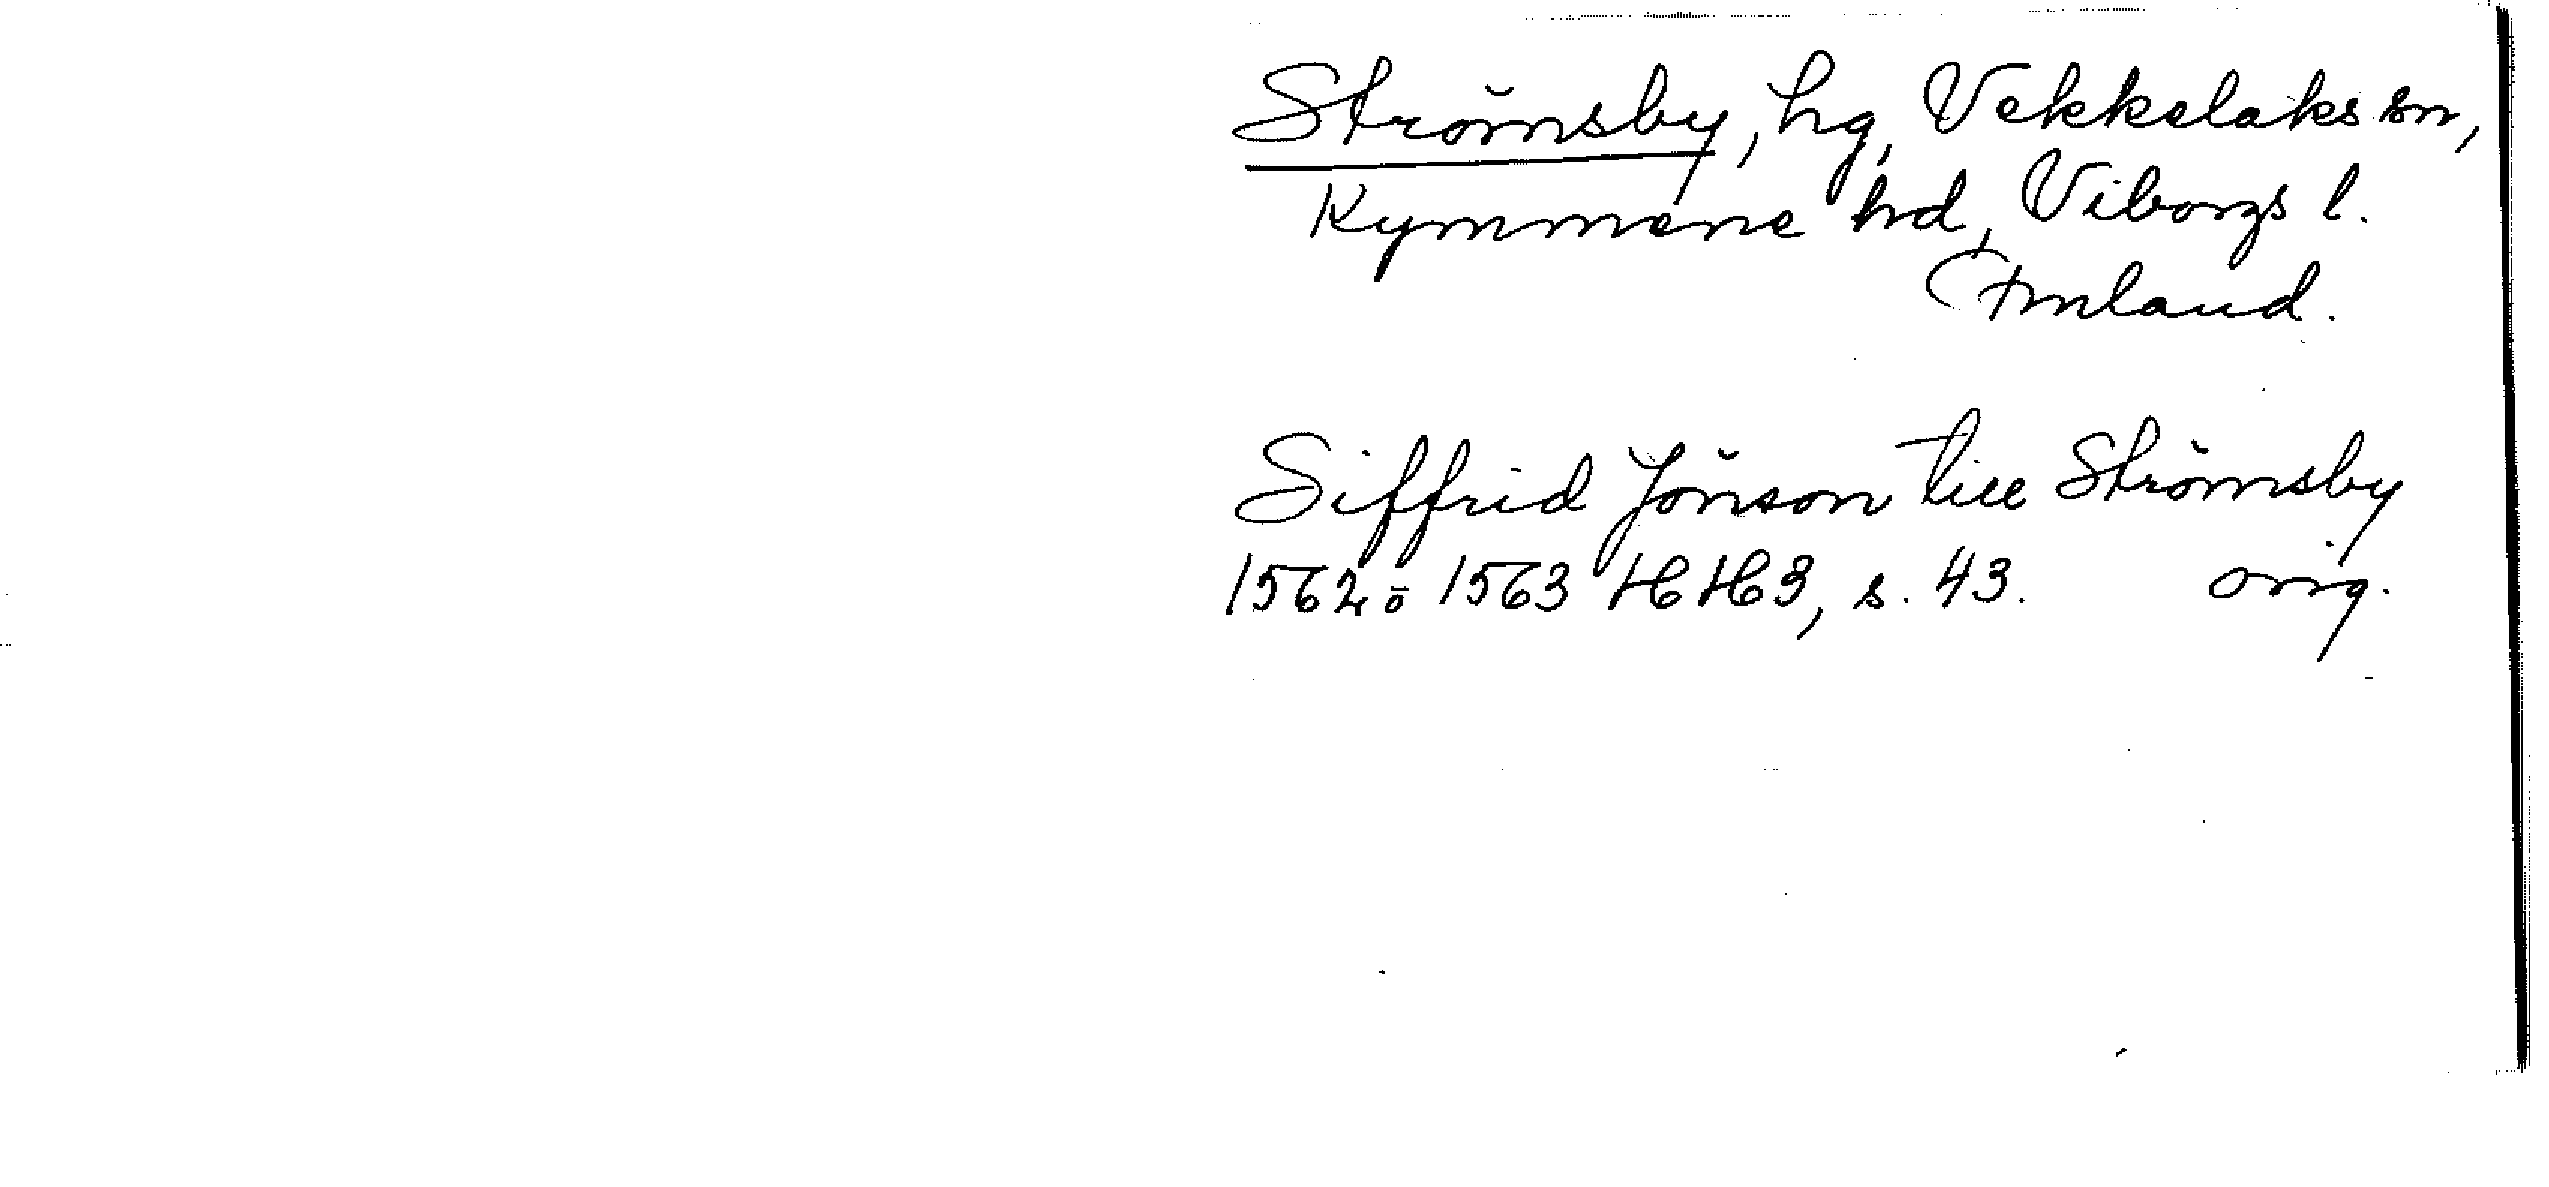 Strömsby, hg, Vekkelaks sn,
Kymmene hd, Viborgs l.
Finland.
Siffrid Jönson till Strömsby
1562 ō 1563 HH3, s. 43. orig.